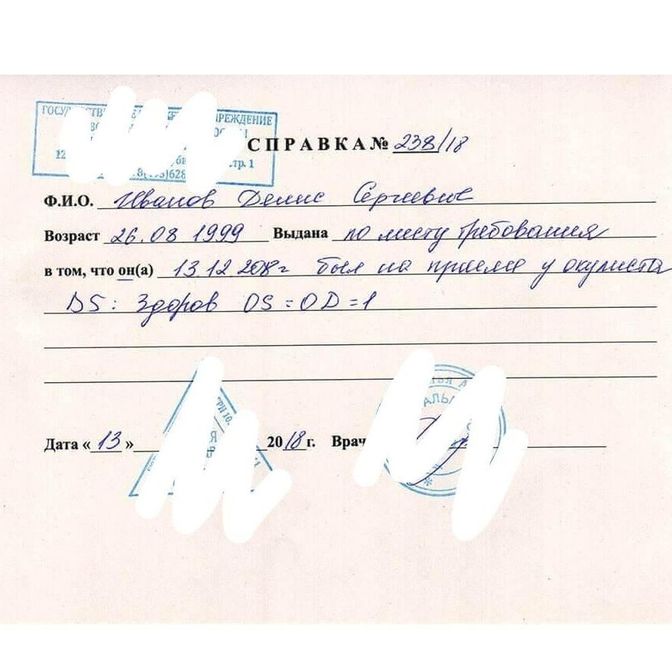 ГОСУДАРСТВЕ РЕЖДЕНИЕ
СПРАВКА № 238/18
Ф.И.О. Иванов Денис Сергеевич
Возраст 26.08 1999 Выдана по месту требования
в том, что он(а) 13 12 2018г был на приеме у окулиста
DS: Здоров OS = OD = 1
Дата « 13 » 2018 г. Врач